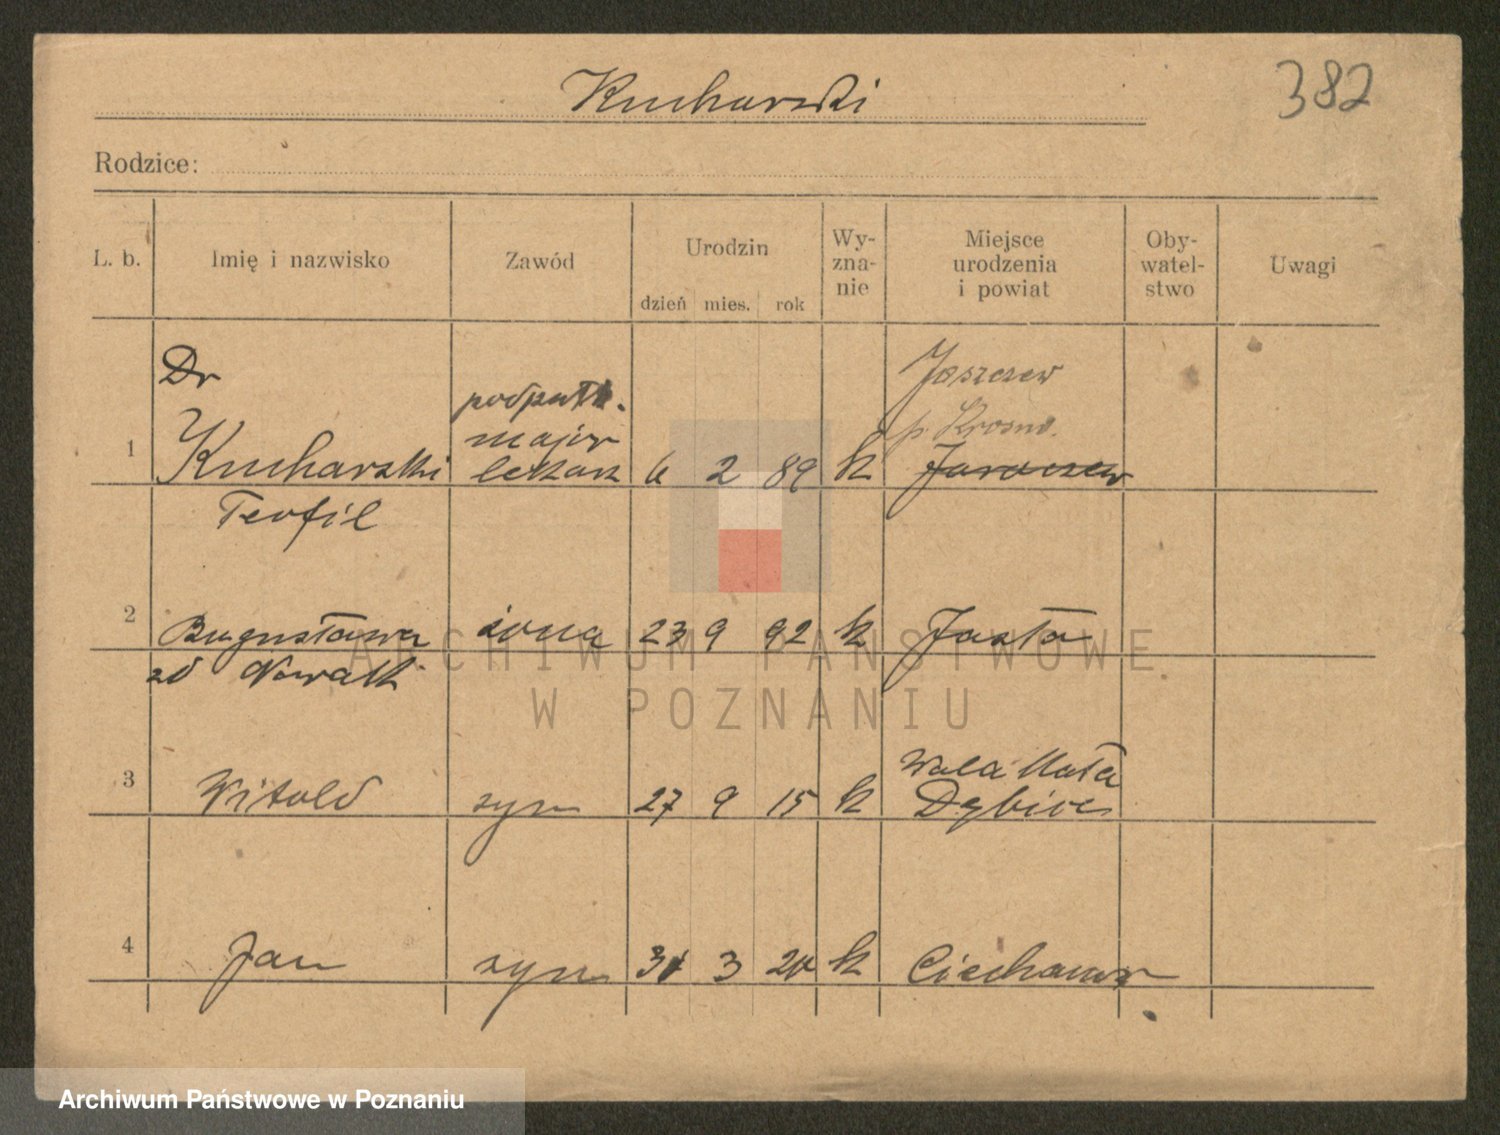 Kucharski
382
Rodzice:
L. b.
Imię i nazwisko
Zawód
Urodzin
dzień mies. rok
Wy-
zna-
nie
Miejsce
urodzenia
i powiat
Oby-
watel-
stwo
Uwagi
1
Dr
Kucharski
Teofil
podpułk.
major
lekarz
6 2 89 k
Jaszczew
p. Krosno.
Jaraczew
2
Bugusława
zd Nowak
żona
23 9 92 k
Jasło
3
Witold
syn
27 9 15 k
Wola Mała
Dębice
4
Jan
syn
31 3 20 k
Ciechanów
ARCHIWUM PAŃSTWOWE
W POZNANIU
Archiwum Państwowe w Poznaniu